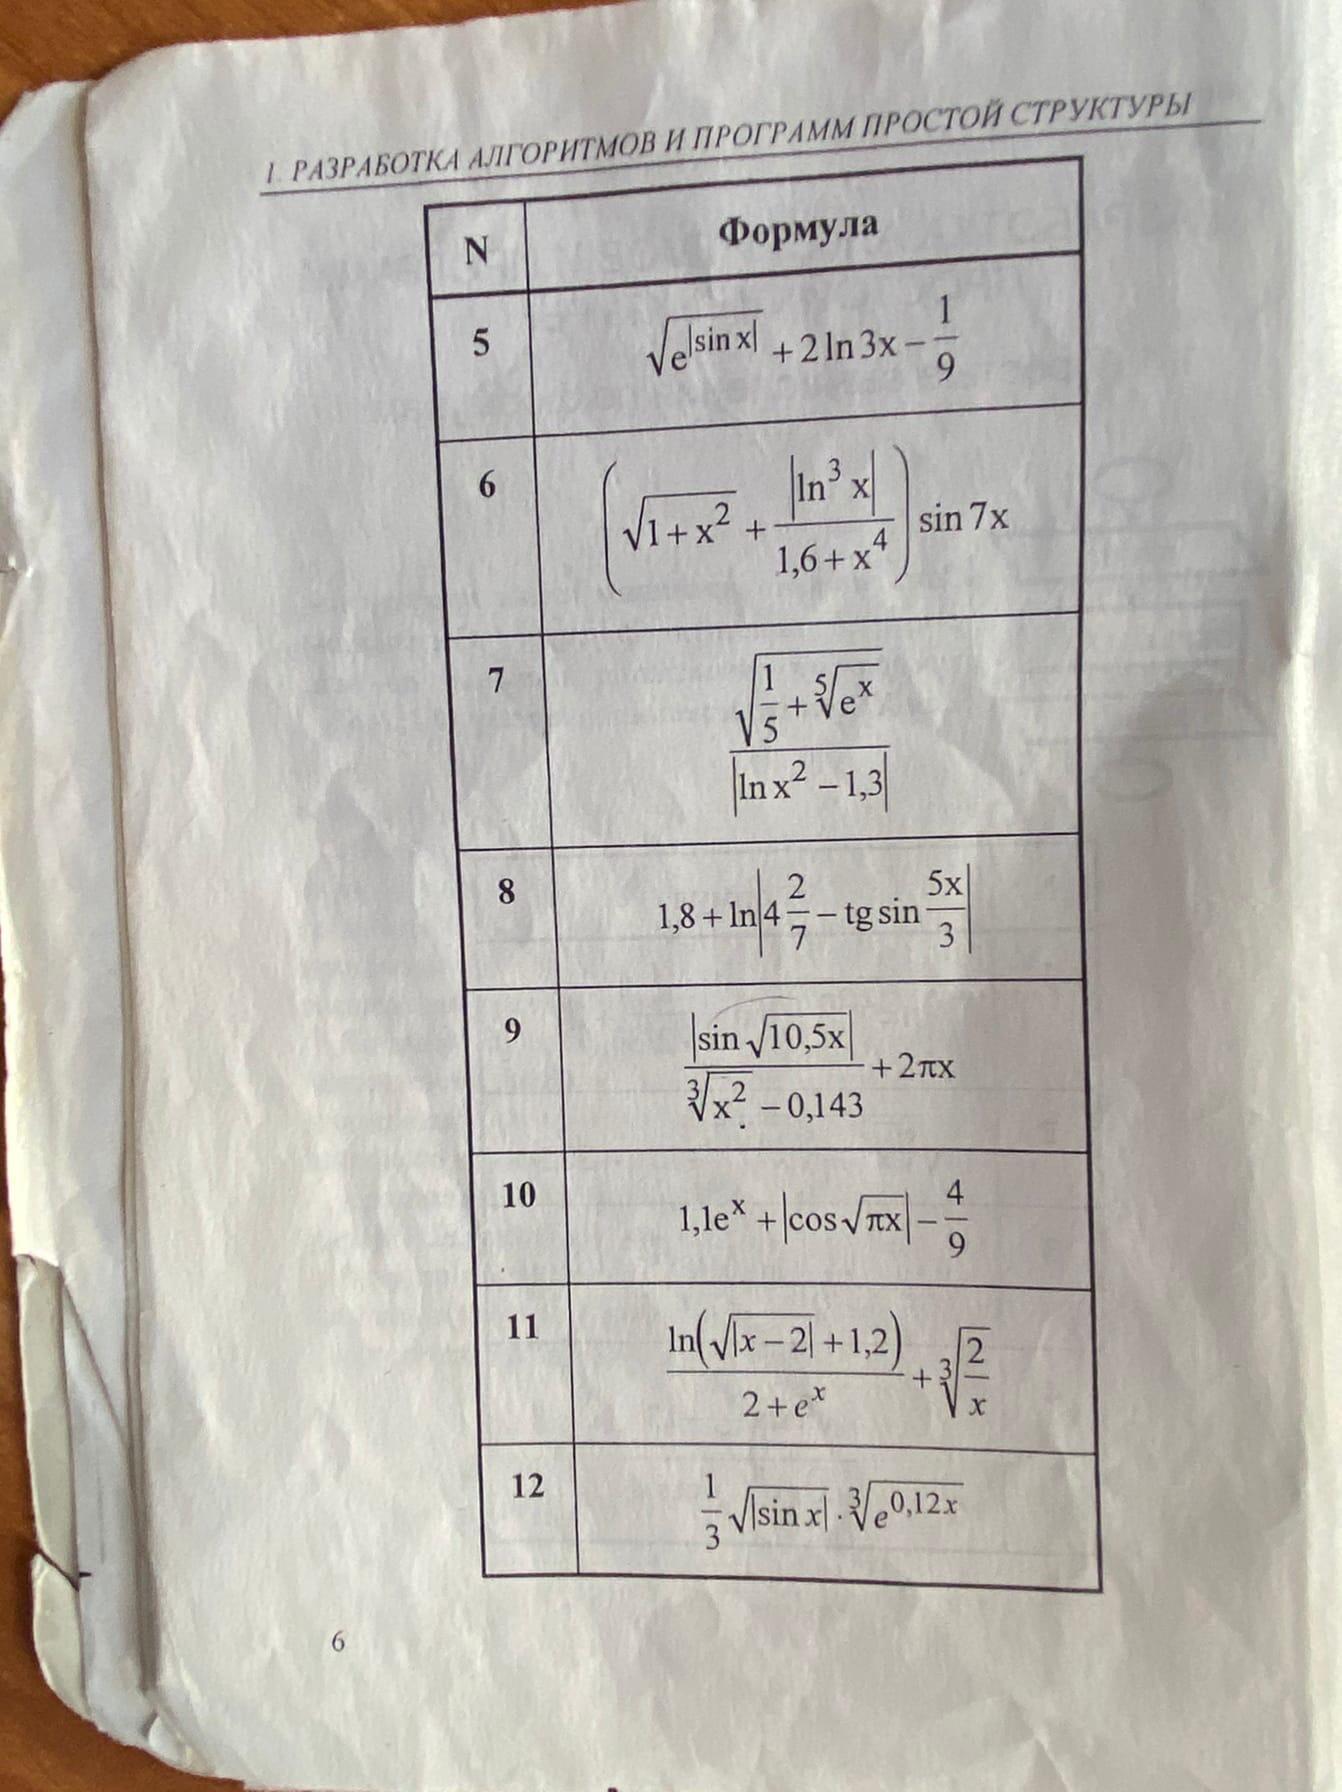 1. РАЗРАБОТКА АЛГОРИТМОВ И ПРОГРАММ ПРОСТОЙ СТРУКТУРЫ
N Формула
5 √(e^|sin x|) + 2 ln 3x − 1/9
6 (√(1 + x²) + |ln³ x|/(1,6 + x⁴)) sin 7x
7 √(1/5 + ⁵√(eˣ)) / |ln x² − 1,3|
8 1,8 + ln|4 2/7 − tg sin 5x/3|
9 |sin √(10,5x)| / (³√(x²) − 0,143) + 2πx
10 1,1eˣ + |cos √(πx)| − 4/9
11 ln(√|x − 2| + 1,2) / (2 + eˣ) + ³√(2/x)
12 1/3 √|sin x| · ³√(e^0,12x)
6